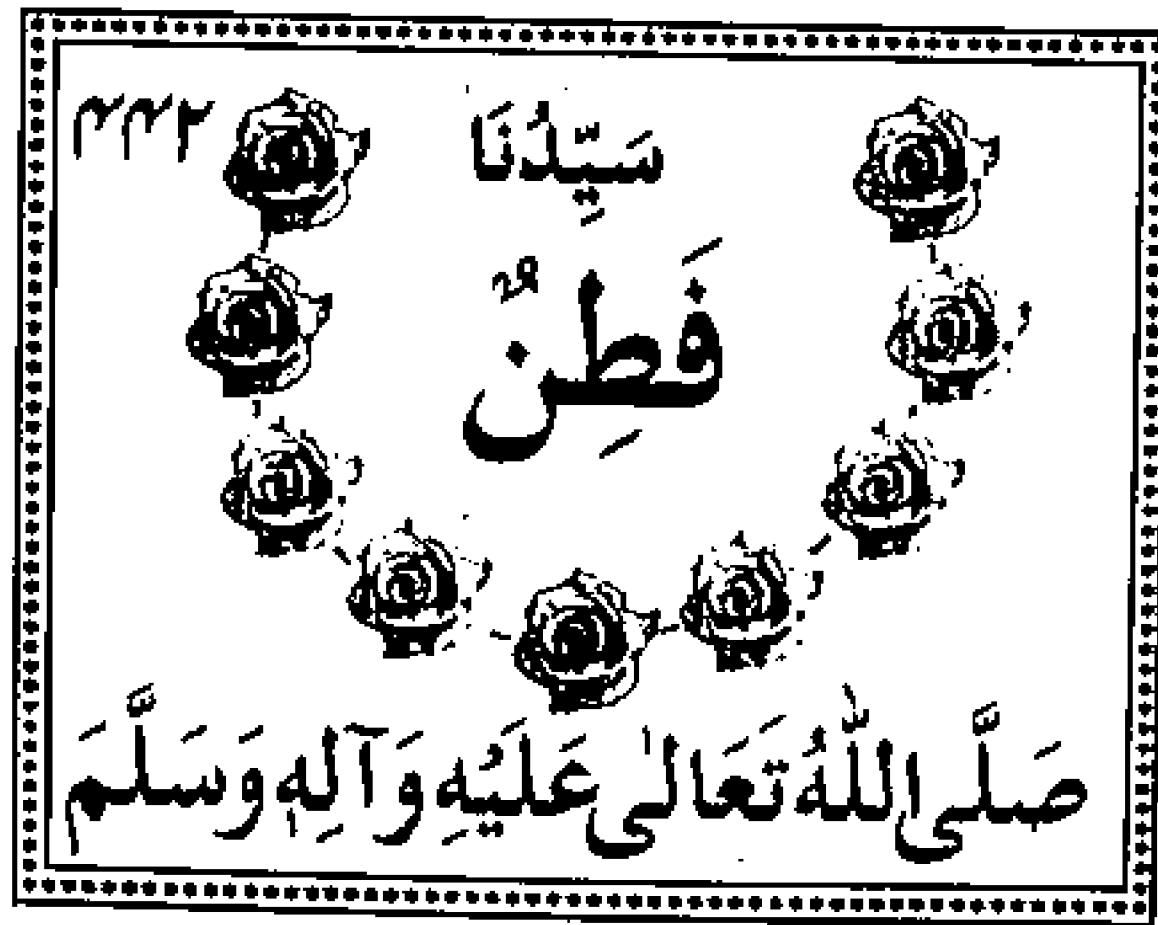 ۳۳۲
سَيِّدُنَا
فَطِنٌ
صَلَّى اللّٰهُ تَعَالٰى عَلَيْهِ وَآلِهٖ وَسَلَّمَ